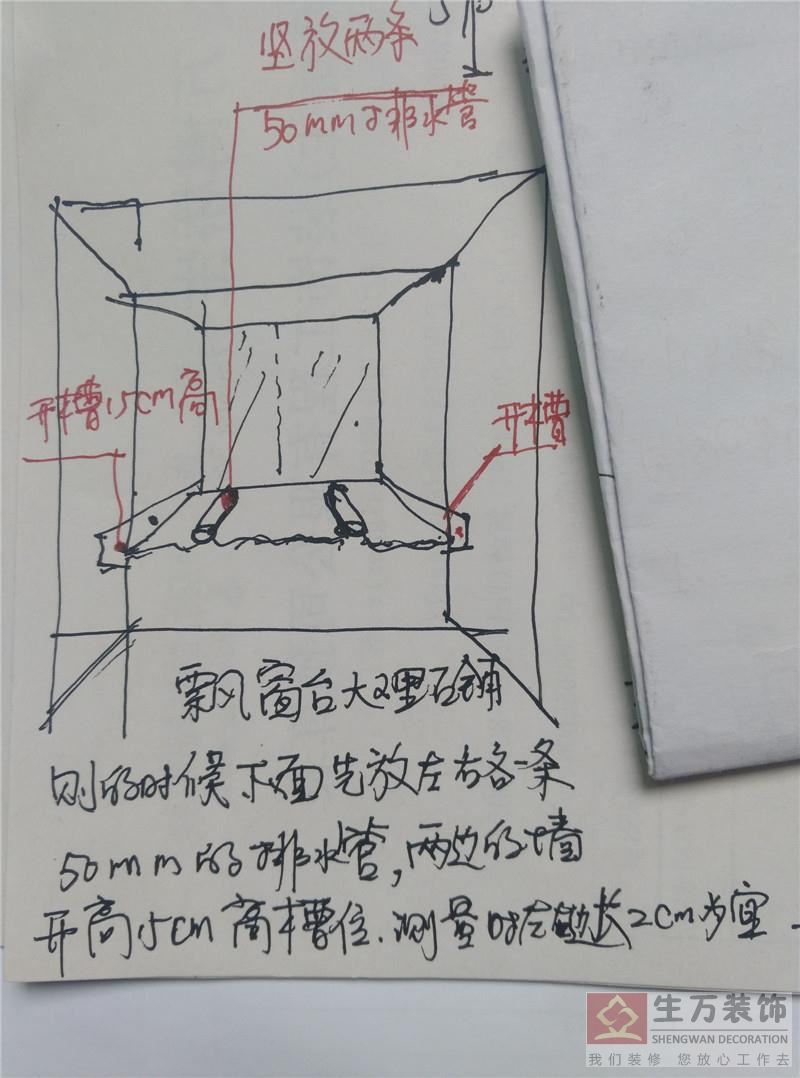 竖放两条
50mm排水管
开槽15cm高
开槽
飘风窗台大理石铺
则的时候下面先放左右各一条
50mm的排水管,两边的墙
开高15cm高槽位.测量时左
2cm为宜
生万装饰
SHENGWAN DECORATION
我们装修 您放心工作去